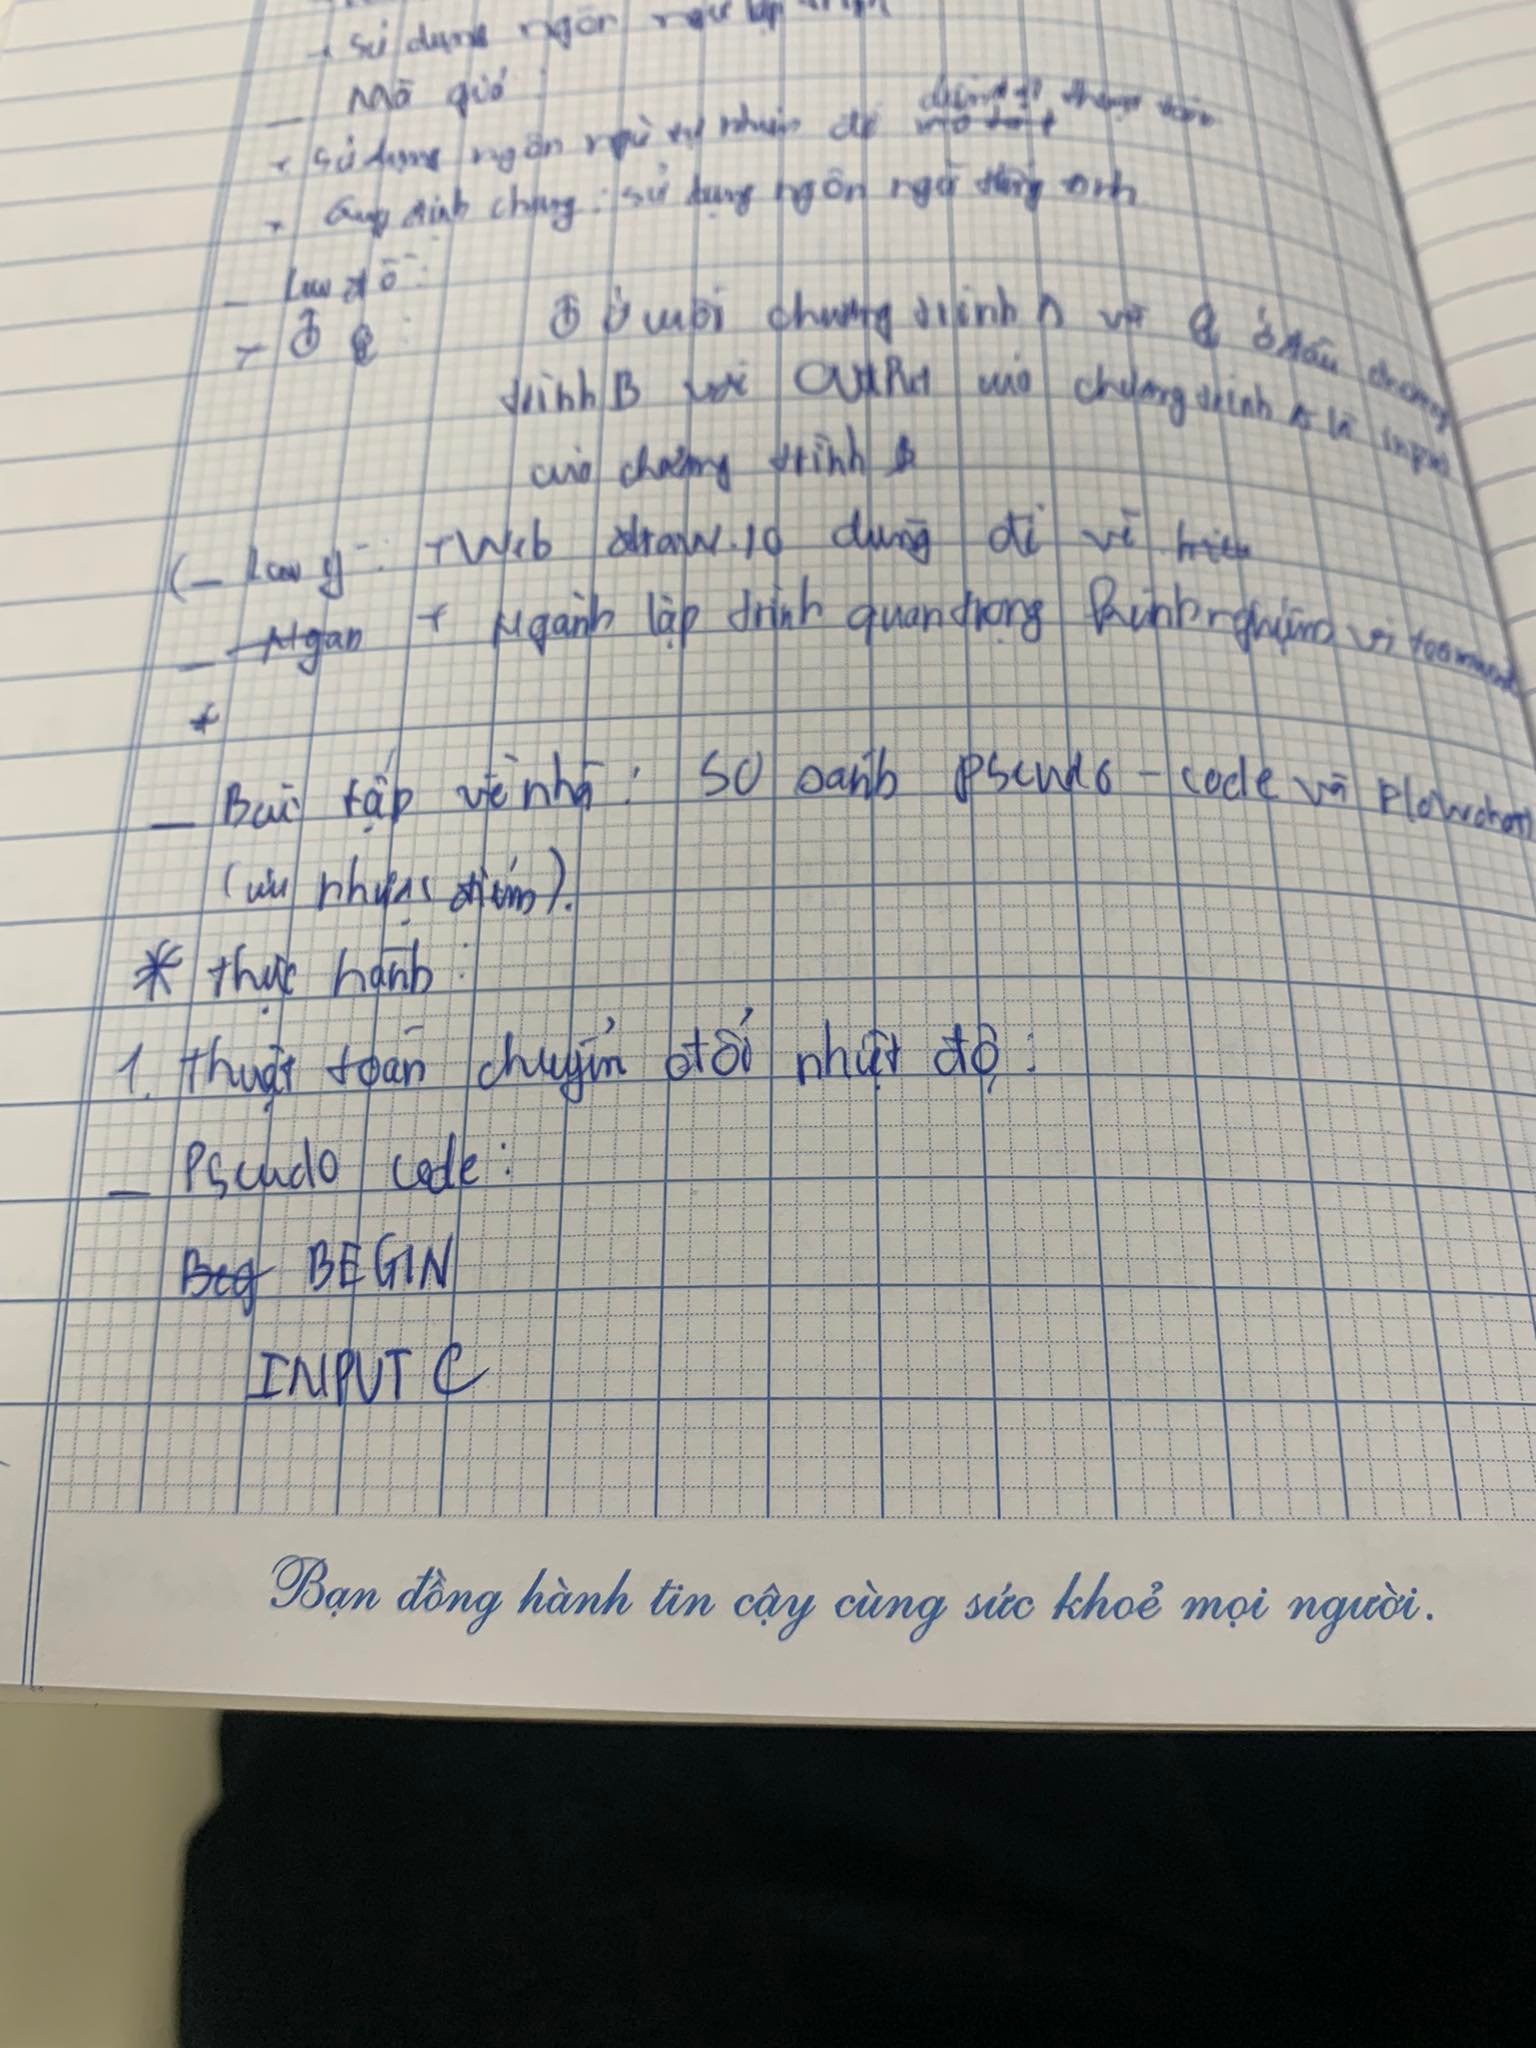 + sử dụng ngôn ngữ lập trình
_ Mã giả :
+ sử dụng ngôn ngữ tự nhiên để thuật toán
+ Quy định chung : sử dụng ngôn ngữ tiếng anh
_ Lưu đồ :
+ ở cuối chương trình A và ở đầu chương
trình B với OutPut của chương trình A là input
của chương trình B
(_ Lưu ý : + Web draw.io dùng để vẽ
_ Ngan + Ngành lập trình quan trọng kinh nghiệm và teamwork
+
_ Bài tập về nhà : SO sánh Pseudo - code và Flowchart
(ưu nhược điểm).
* thực hành :
1. thuật toán chuyển đổi nhiệt độ :
_ Pseudo code :
Beg BEGIN
INPUT C
Bạn đồng hành tin cậy cùng sức khoẻ mọi người.